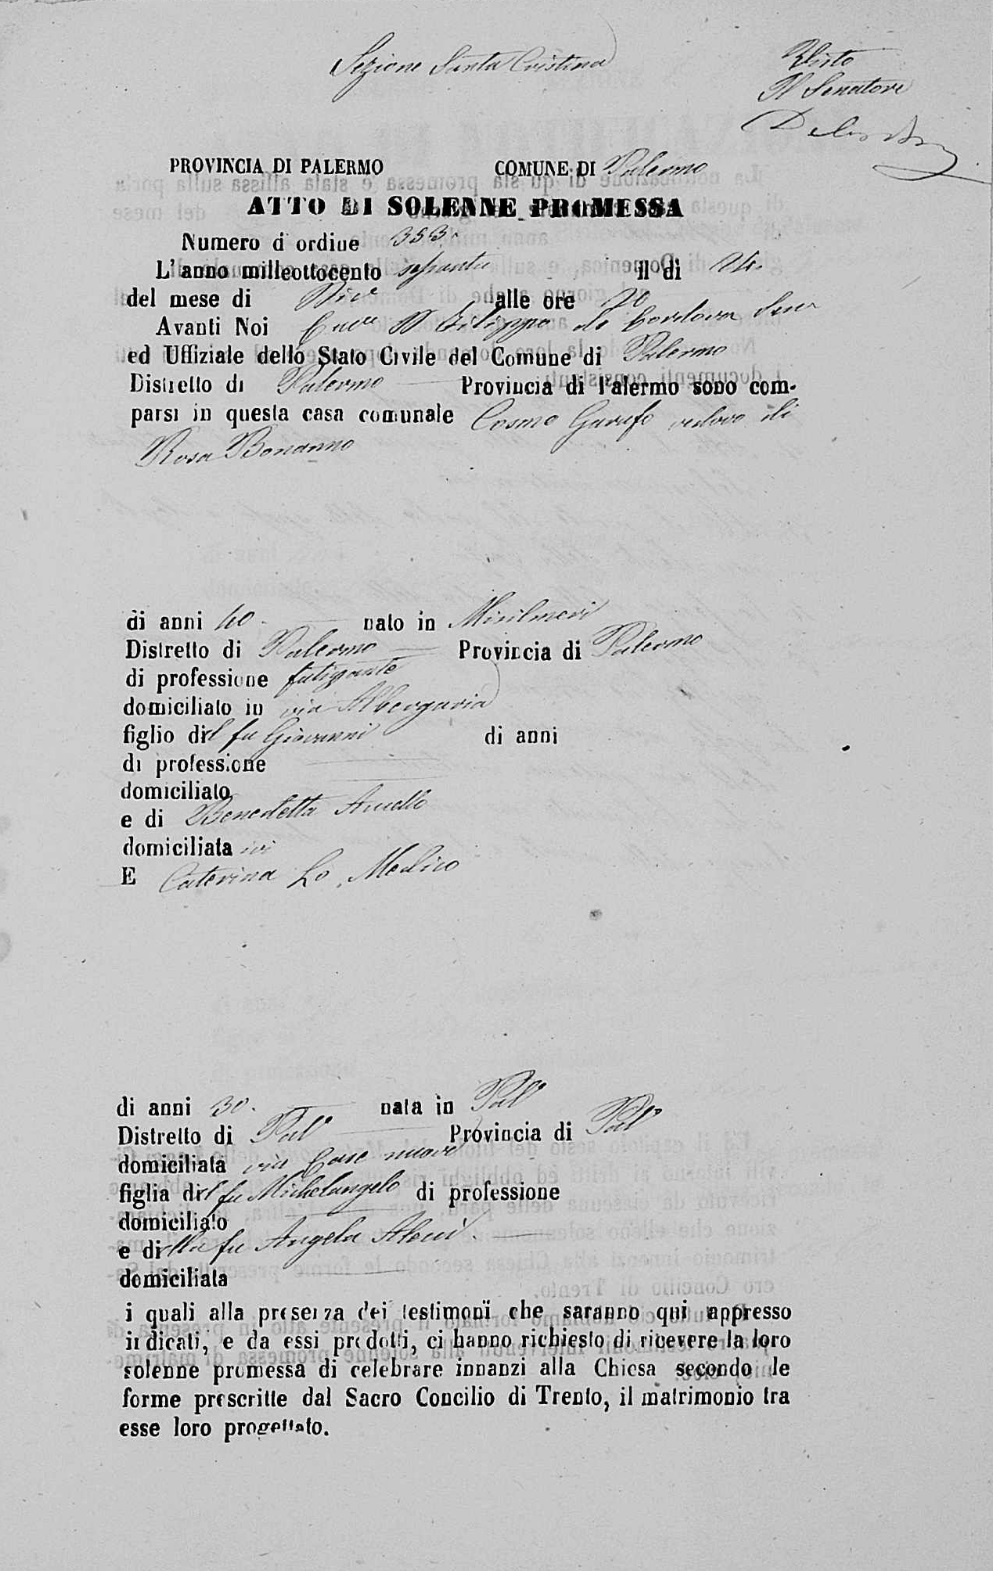 Sezione Santa Cristina
Visto
Il Senatore
PROVINCIA DI PALERMO COMUNE DI Palermo
ATTO DI SOLENNE PROMESSA
Numero d'ordine 353.
L'anno milleottocento sessanta Il di 24.
del mese di alle ore 20
Avanti Noi Cavre D Filippo de Cordova Senre
ed Uffiziale dello Stato Civile del Comune di Palermo
Distretto di Palermo Provincia di Palermo sono com-
parsi in questa casa comunale Cosmo Garufo vedovo di
Rosa Bonanno
di anni 40. nato in Misilmeri
Distretto di Palermo Provincia di Palermo
di professione fatigante
domiciliato in via Albergaria
figlio del fu Giovanni di anni
di professione
domiciliato
e di Benedetta Amello
domiciliata ivi
E Caterina Lo Medico
di anni 30. nata in Palo
Distretto di Palo Provincia di Palo
domiciliata via Case nuove
figlia del fu Michelangelo di professione
domiciliato
e di della fu Angela
domiciliata
i quali alla presenza dei testimoni che saranno qui appresso
indicati, e da essi prodotti, ci hanno richiesto di ricevere la loro
solenne promessa di celebrare innanzi alla Chiesa secondo le
forme prescritte dal Sacro Concilio di Trento, il matrimonio tra
esse loro progettato.